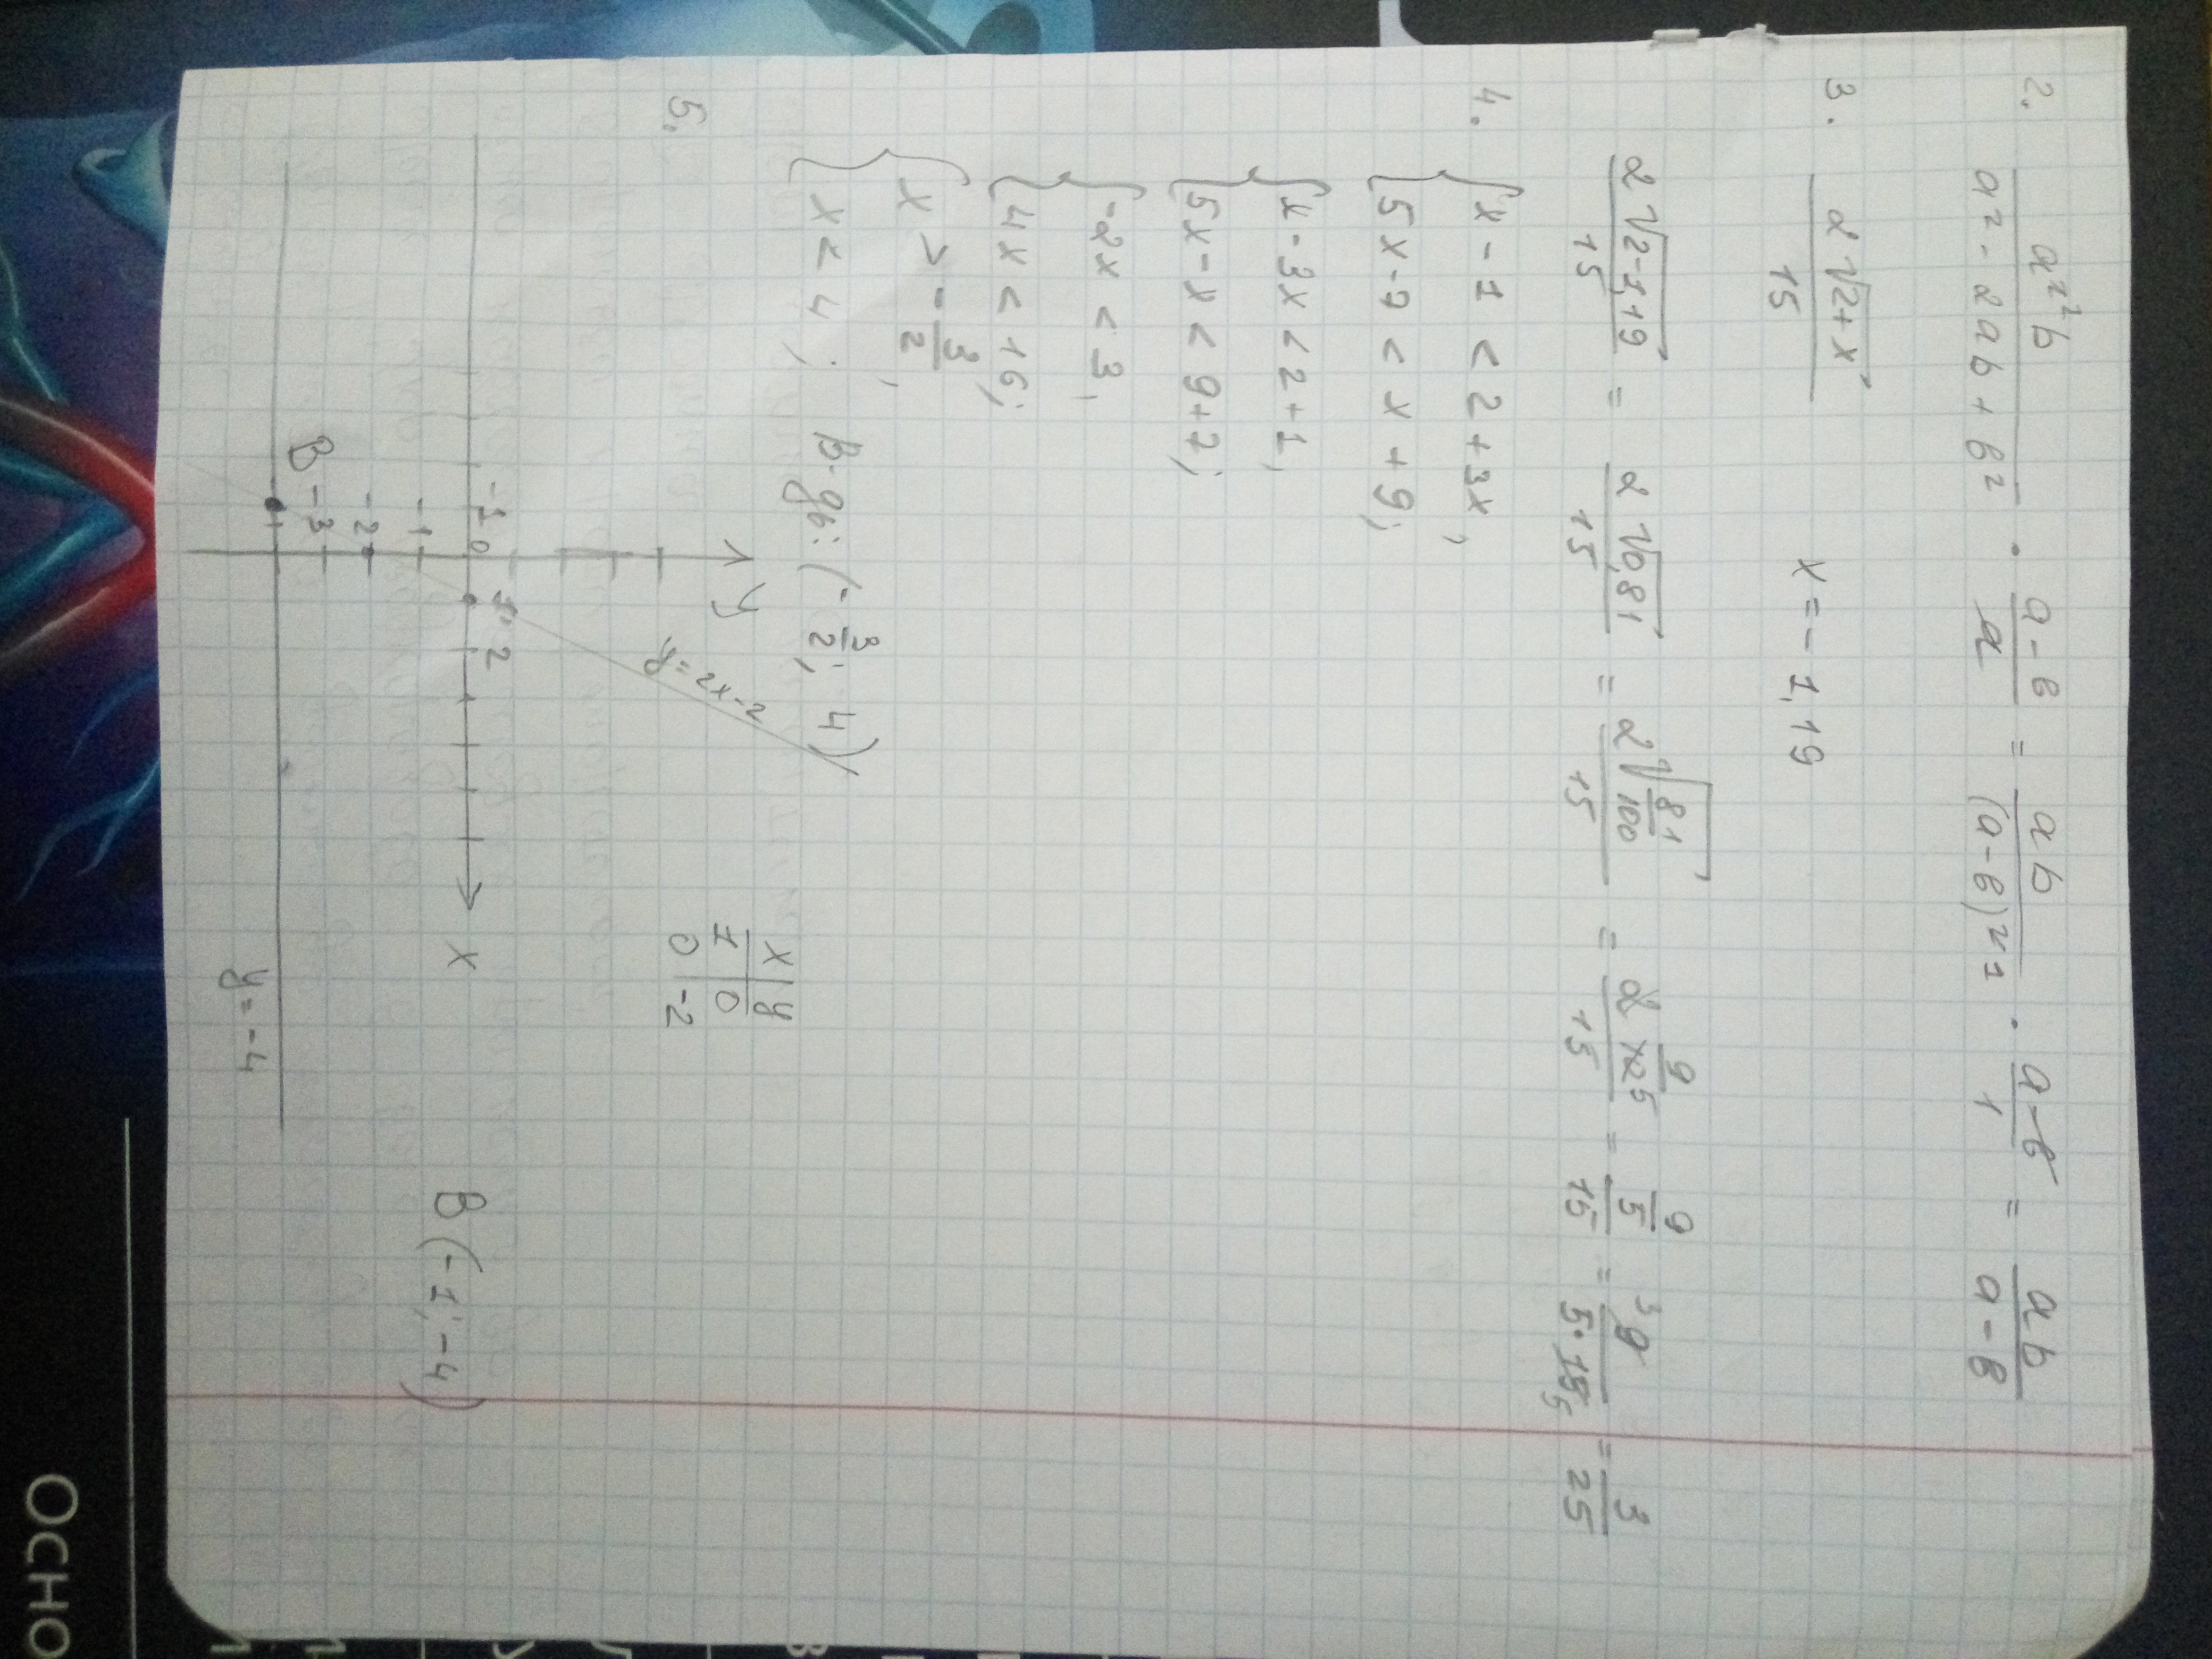 2. a²b / (a² - 2ab + b²) · (a - b) / a = ab / (a - b)² · (a - b) / 1 = ab / (a - b)
3. 2√(2+x) / 15 x = -1,19
2√(2-1,19) / 15 = 2√0,81 / 15 = 2√(81/100) / 15 = 2 9/10 5 / 15 = 9/5 / 15 = 3 9 / 5·15 5 = 3/25
4. { x - 1 < 2 + 3x,
{ 5x - 7 < x + 9;
{ x - 3x < 2 + 1,
{ 5x - x < 9 + 7;
{ -2x < 3,
{ 4x < 16;
{ x > -3/2,
{ x < 4; В-дь: (-3/2; 4)
5.
x | y
1 | 0
0 | -2
y
y=2x-2
-1 0 1 2
x
-1
-2
-3
B
y = -4
B (-1; -4)
ОСНО